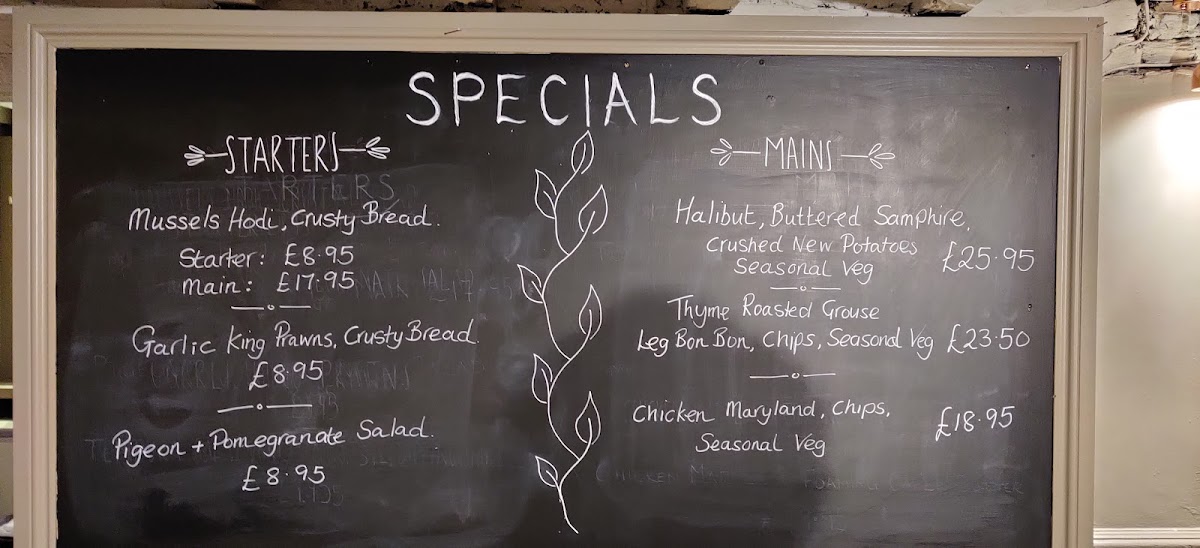 SPECIALS
STARTERS
Mussels Hodi, Crusty Bread.
Starter: £8.95
Main: £17.95
Garlic King Prawns, Crusty Bread.
£8.95
Pigeon + Pomegranate Salad.
£8.95
MAINS
Halibut, Buttered Samphire,
Crushed New Potatoes
Seasonal Veg £25.95
Thyme Roasted Grouse
Leg Bon Bon, Chips, Seasonal Veg £23.50
Chicken Maryland, Chips,
Seasonal Veg £18.95